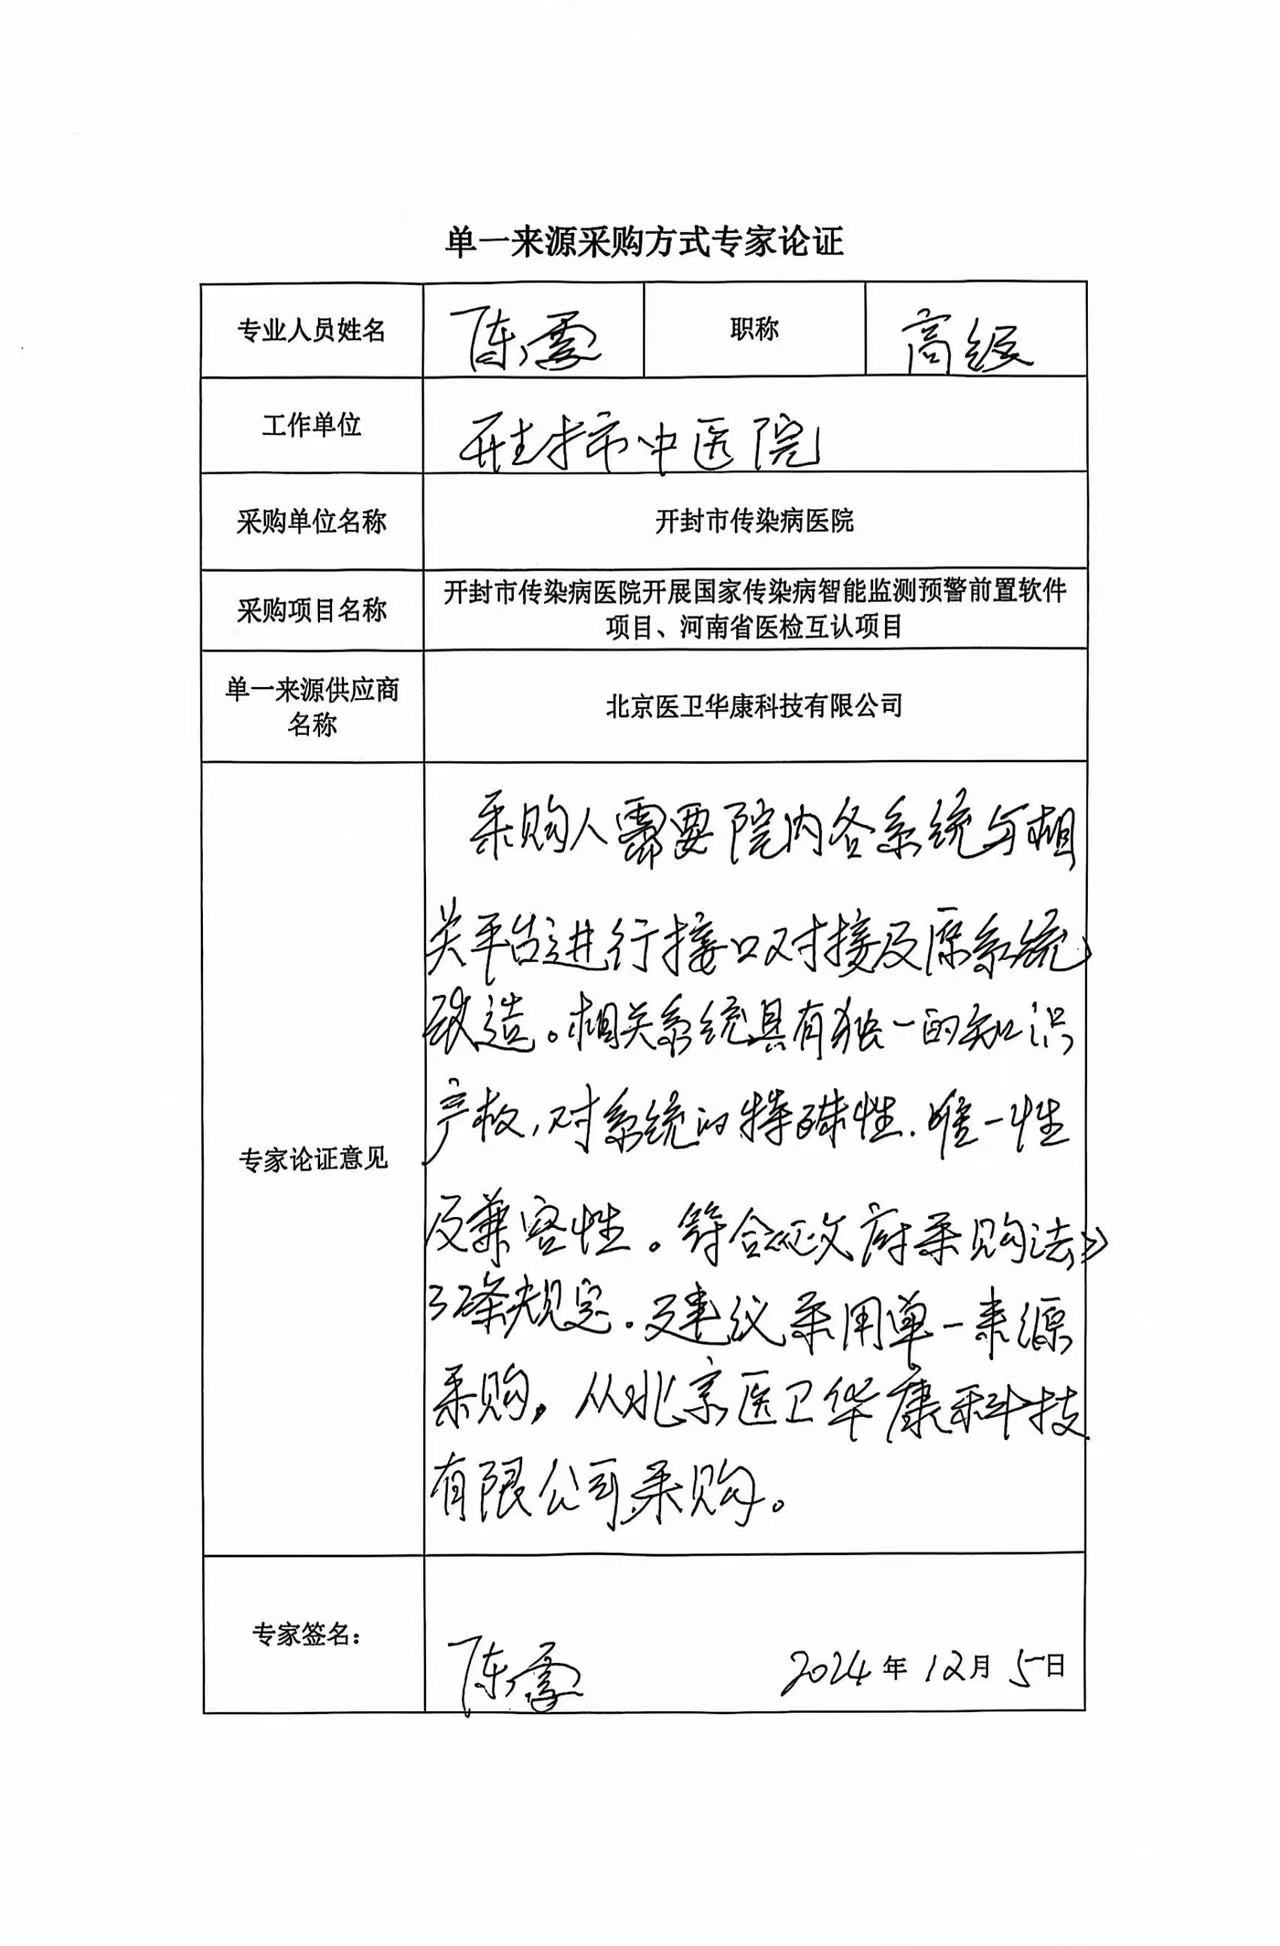 单一来源采购方式专家论证
专业人员姓名 陈霞 职称 高级
工作单位 开封市中医院
采购单位名称 开封市传染病医院
采购项目名称 开封市传染病医院开展国家传染病智能监测预警前置软件
项目、河南省医检互认项目
单一来源供应商
名称
北京医卫华康科技有限公司
专家论证意见
采购人需要院内各系统与相
关平台进行接口对接及原系统
改造。相关系统具有独一的知识
产权,对系统的特殊性.唯一性
及兼容性。符合《政府采购法》
32条规定.建议采用单一来源
采购,从北京医卫华康科技
有限公司采购。
专家签名:
陈霞 2024年12月5日